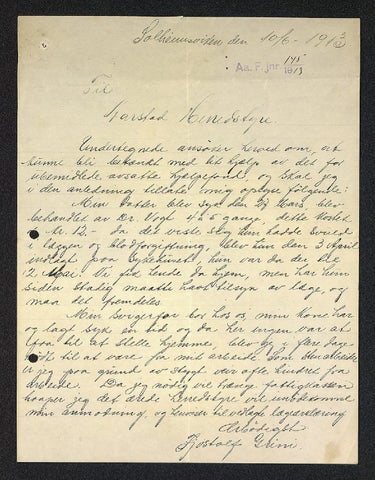 Solheimsviken den 10/6 - 1913
Aa. F. jnr 145/1913
Til
Aarstad Herredstyre.
Undertegnede ansøker herved om, at
kunne bli betænkt med lit hjelp av det for
ubemidlede avsatte hjelpefond, og skal jeg
i den anledning tillate mig oplyse følgende:
Min datter blev syk den Mars, blev
behandlet av Dr. Vogt 4 a 5 gange, dette kostet
Kr 12,- da det viste sig hun hadde byld
i læggen og blodforgiftning, blev hun den 3 April
indlagt paa Sykehuset, hun var der til
12 Mai. Vi fik hende da hjem, men har hun
siden stadig maatte havt tilsyn av læge, og
maa det fremdeles.
Min Svigerfar bor hos os, min kone har
og lagt syk en tid og da her ingen var at
faa til at stelle hjemme, blev jeg i flere dage
nødt til at være fra mit arbeide som
er jeg paa grund av stygt veir ofte hindret fra
arbeide. Da jeg nødig vil trænge fattigkassen
haaper jeg det ærede Herredstyre vil imøtekomme
min anmodning, og hermed vedlagte lægeerklæring
Ærbødigst
Grim.